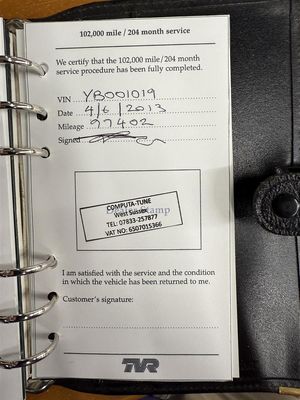 102,000 mile / 204 month service
We certify that the 102,000 mile/204 month
service procedure has been fully completed.
VIN YB001019
Date 4/6/2013
Mileage 97402
Signed
COMPUTA-TUNE
West Sussex
TEL: 07833-257877
VAT NO: 6507015366
I am satisfied with the service and the condition
in which the vehicle has been returned to me.
Customer's signature:
TVR